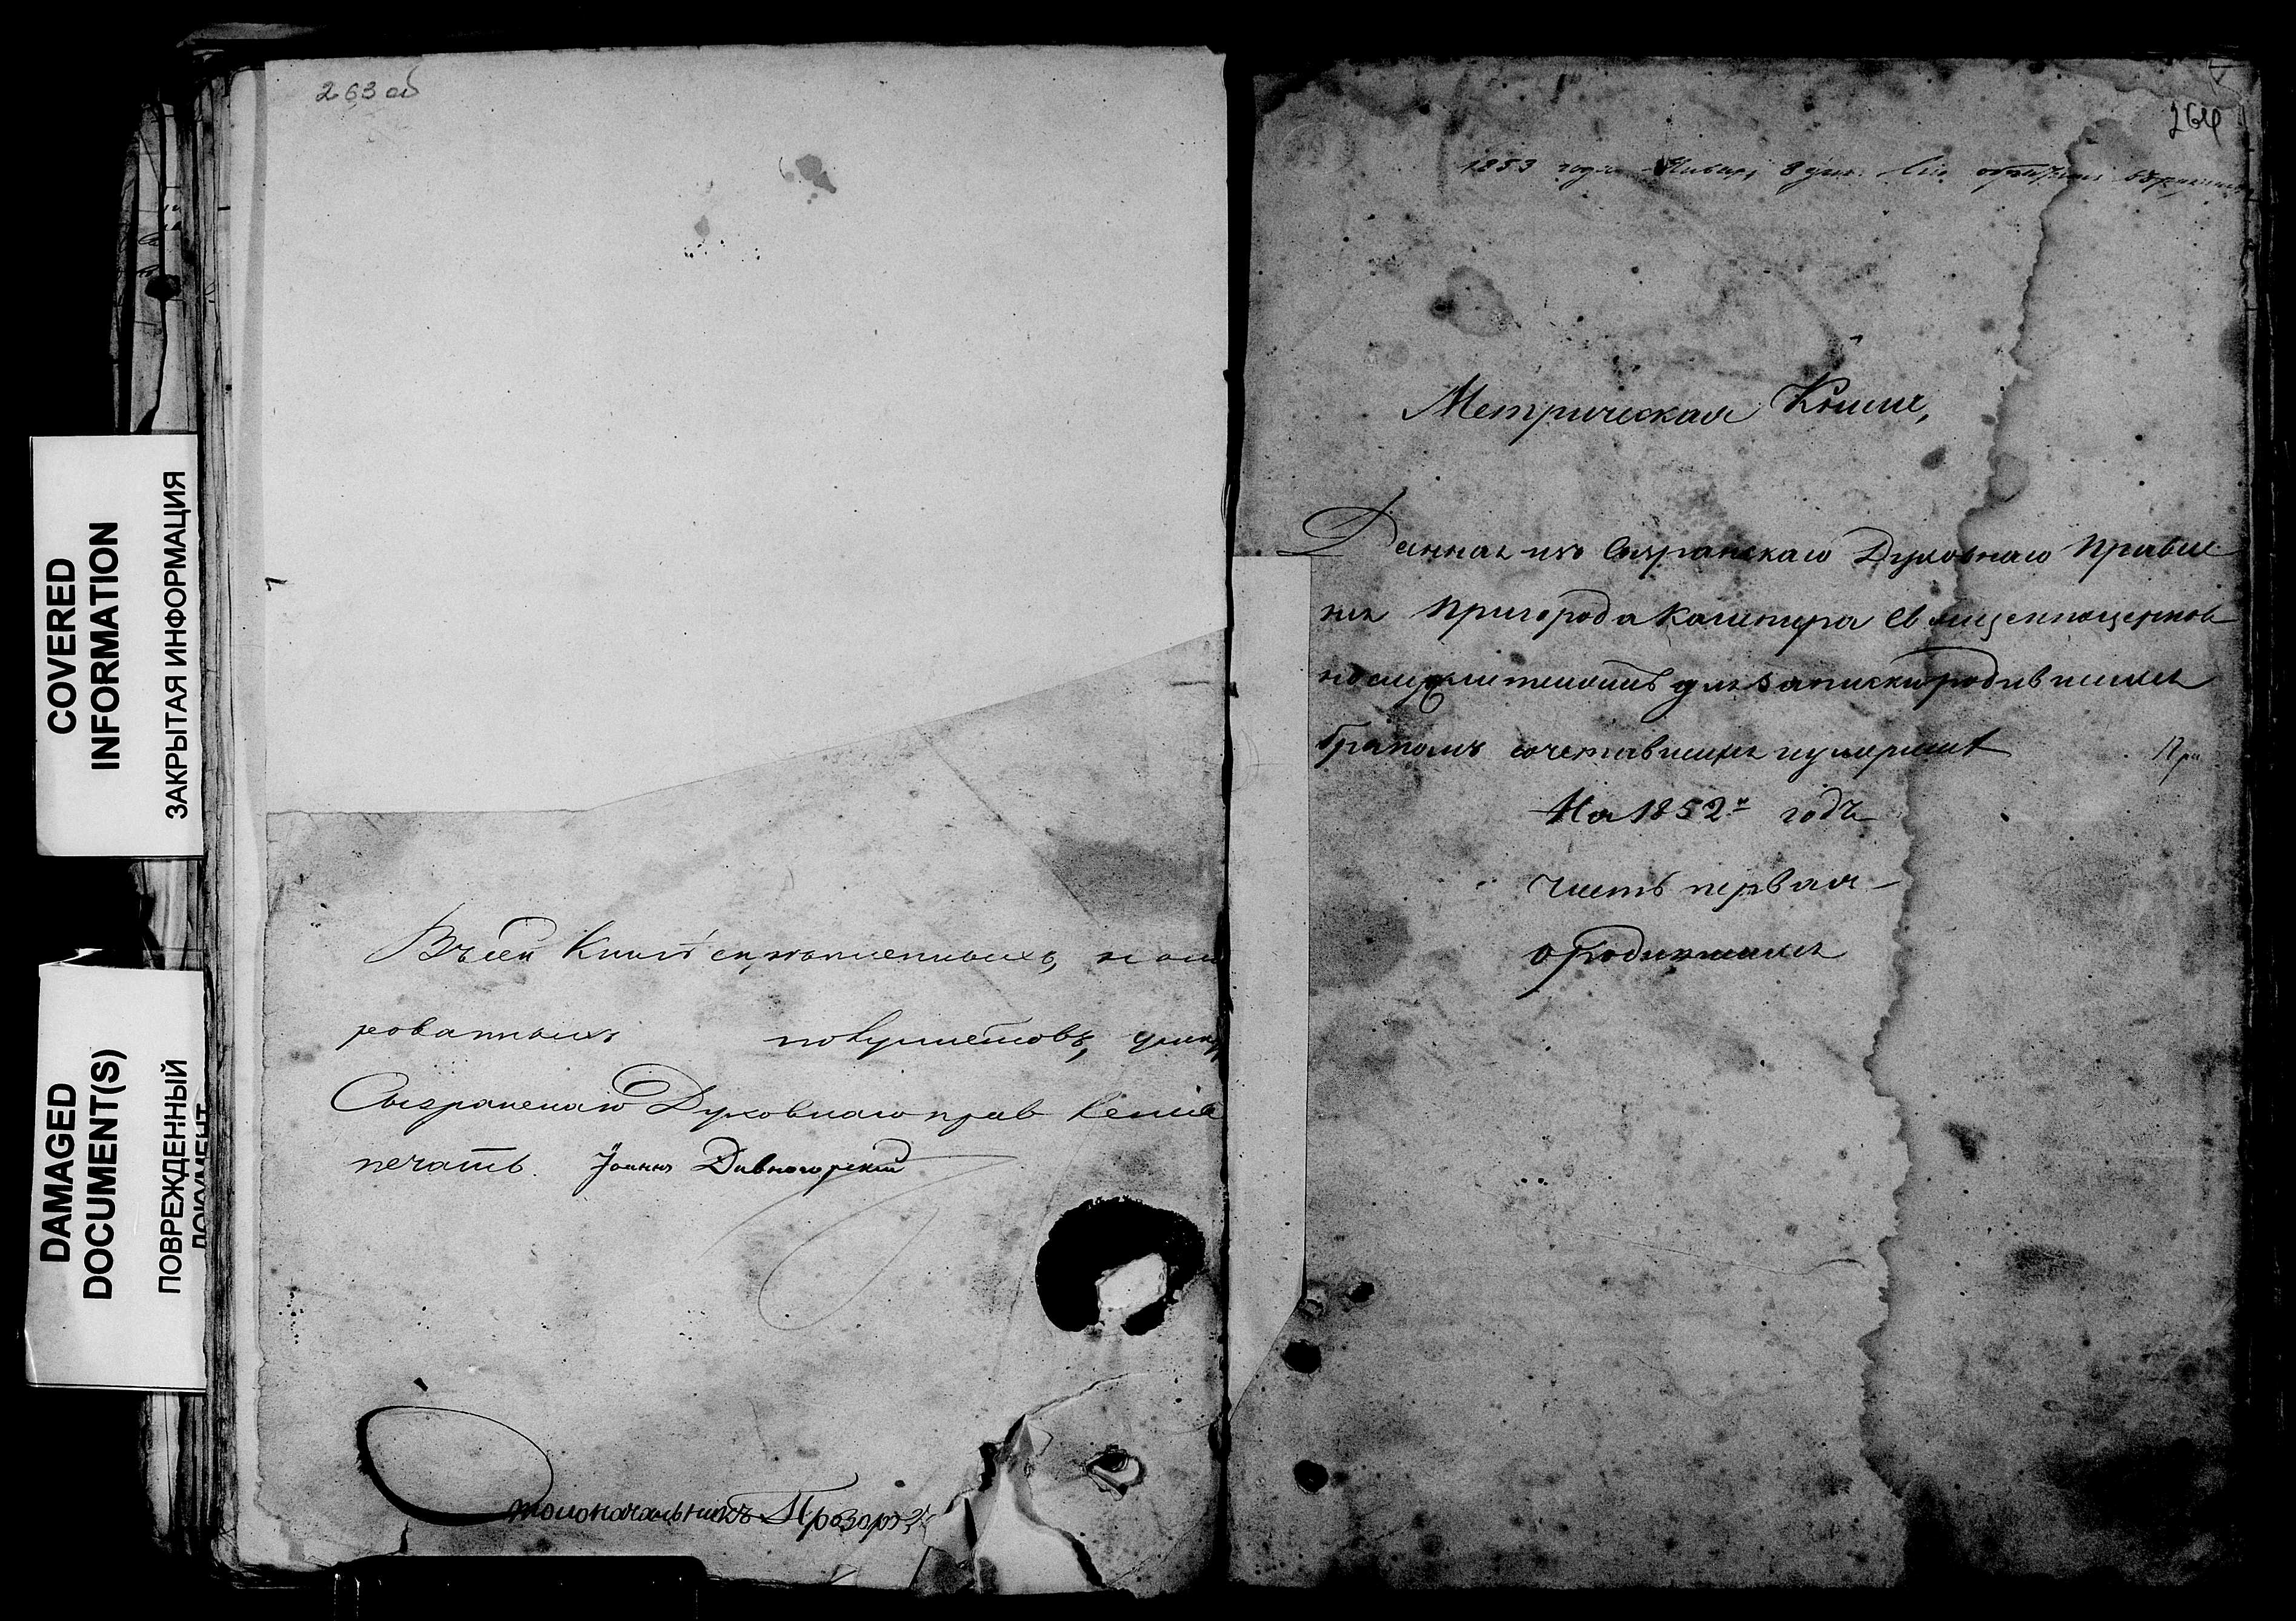 263 об
COVERED
INFORMATION
ЗАКРЫТАЯ ИНФОРМАЦИЯ
DAMAGED
DOCUMENT(S)
ПОВРЕЖДЕННЫЙ
ДОКУМЕНТ
Въ сей Книгѣ
рованныхъ листовъ,
Сызранскаго Духовнаго прав ленія
печать. Іоаннъ Дивногорскій
Столоначальникъ Прозоро
264
1853 года Января 8 дня
Метрическая Книга,
Данная изъ Сызранскаго Духовнаго Правле
нія Пригорода Кашпира Священноцерков
нослужителямъ для записки родившихся
бракомъ сочетавшихся и умершихъ При
На 1852й годъ
часть первая
о родившихся